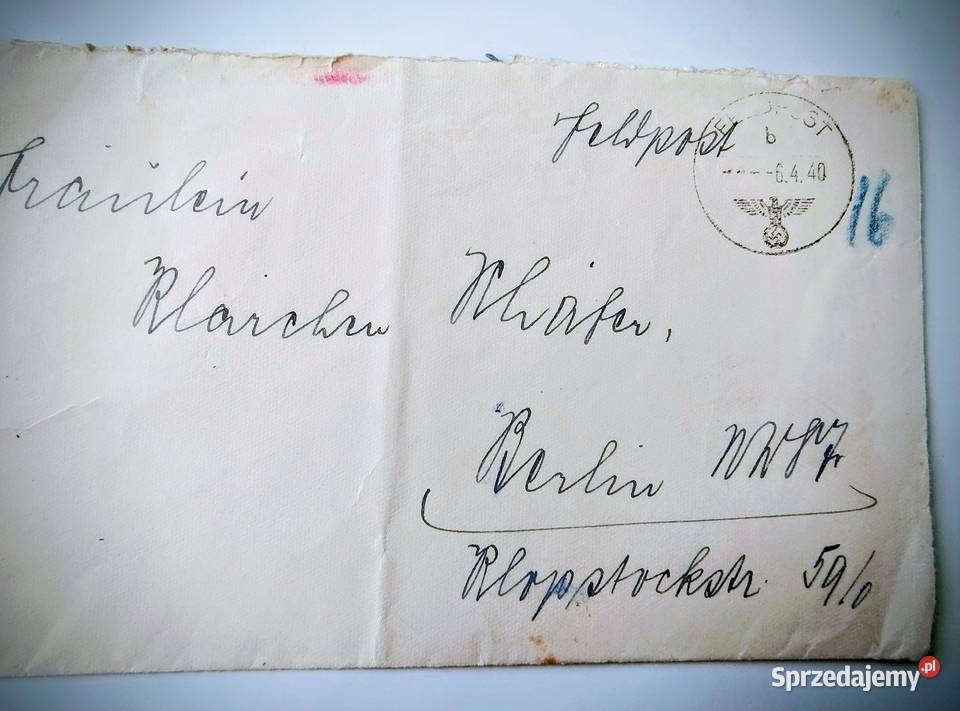 Feldpost
FELDPOST
b
- - - -6.4.40
16
Fräulein
Klärchen Schäfer,
Berlin NW87
Klopstockstr. 59/0
Sprzedajemy.pl